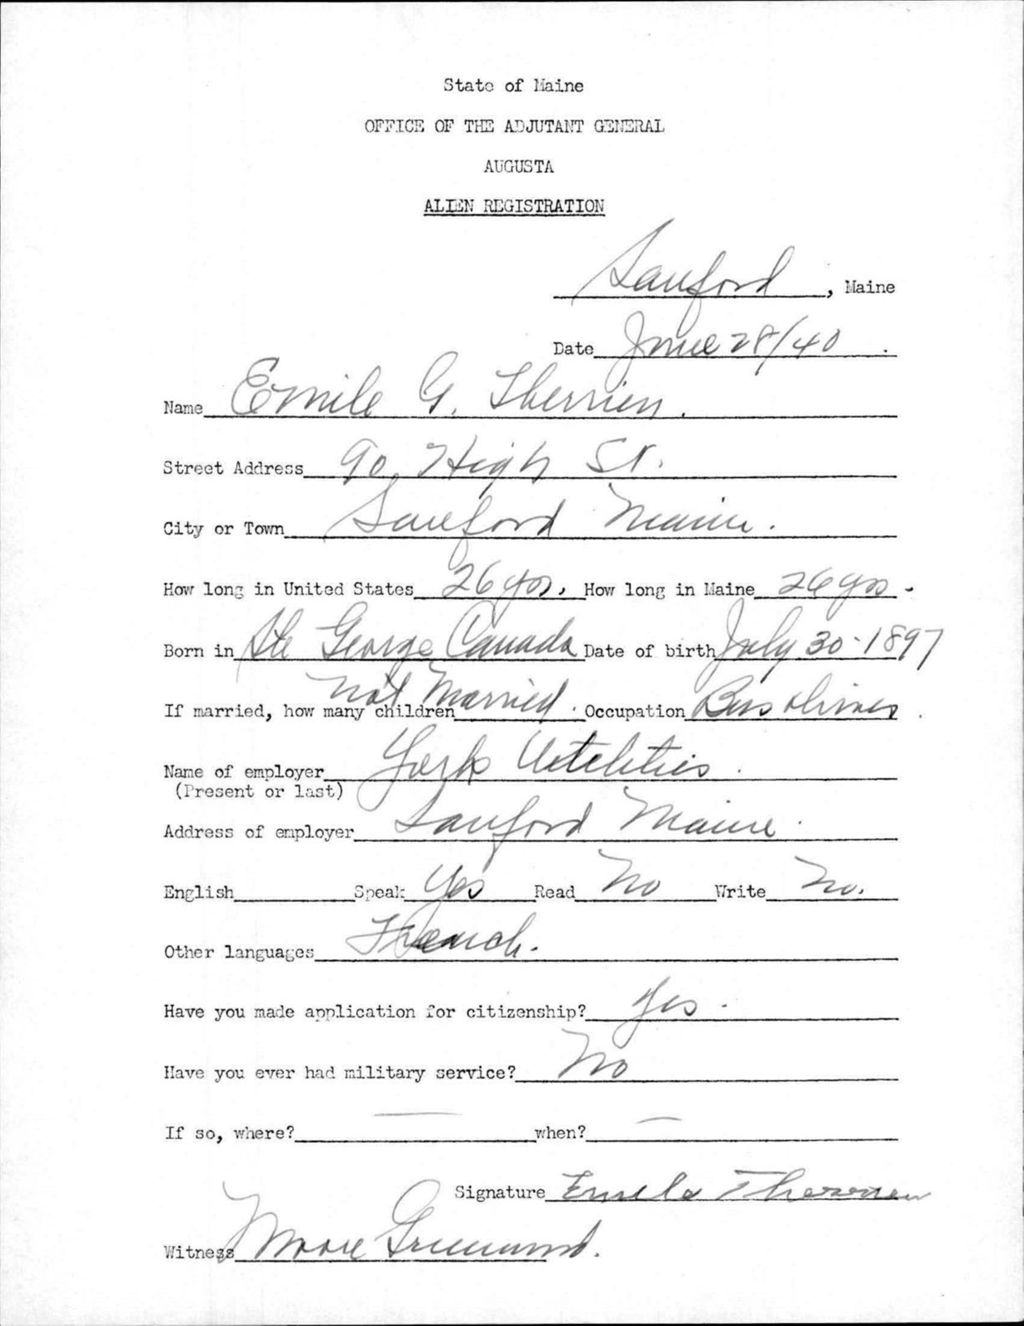 State of Maine
OFFICE OF THE ADJUTANT GENERAL
AUGUSTA
ALIEN REGISTRATION
Sanford, Maine
Date June 28/40.
Name Emile G. Therrien.
Street Address 90 High St.
City or Town Sanford Maine.
How long in United States 26 yrs. How long in Maine 26 yrs.
Born in Ste George Canada Date of birth July 30-1897
If married, how many children not Married. Occupation Bus driver.
Name of employer York Utilities.
(Present or last)
Address of employer Sanford Maine.
English Speak Yes Read No Write No.
Other languages French.
Have you made application for citizenship? Yes.
Have you ever had military service? No
If so, where? — when? —
Signature Emile Therrien
Witness